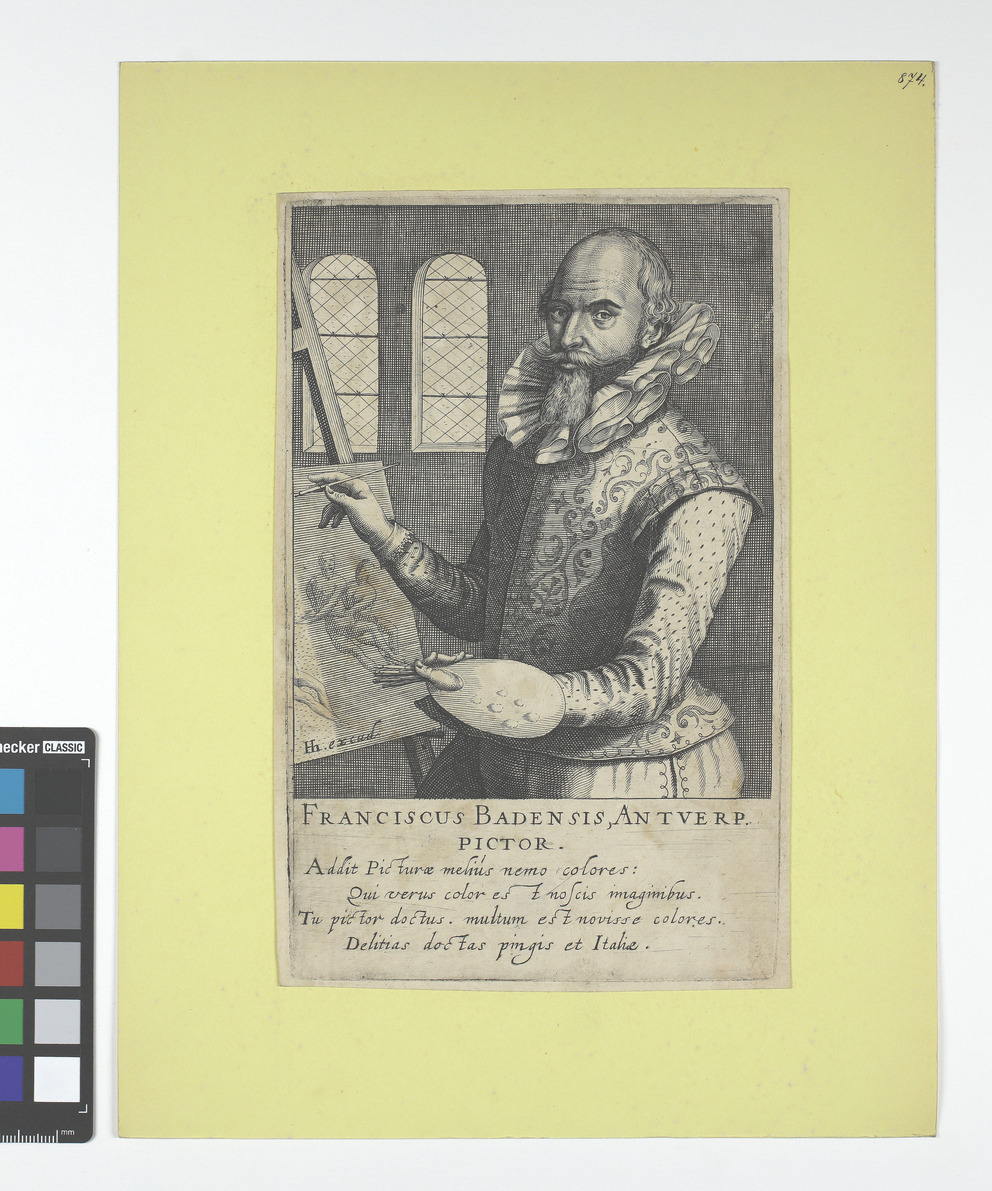 874.
hecker CLASSIC
Hh. excud.
FRANCISCUS BADENSIS, ANTVERP.
PICTOR.
Addit Picturæ meliús nemo colores:
Qui verus color est noſcis imaginibus.
Tu pictor doctus. multum est novisse colores.
Delitias doctas pingis et Italiæ.
mm